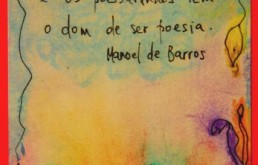 e os passarinhos têm
o dom de ser poesia.
Manoel de Barros